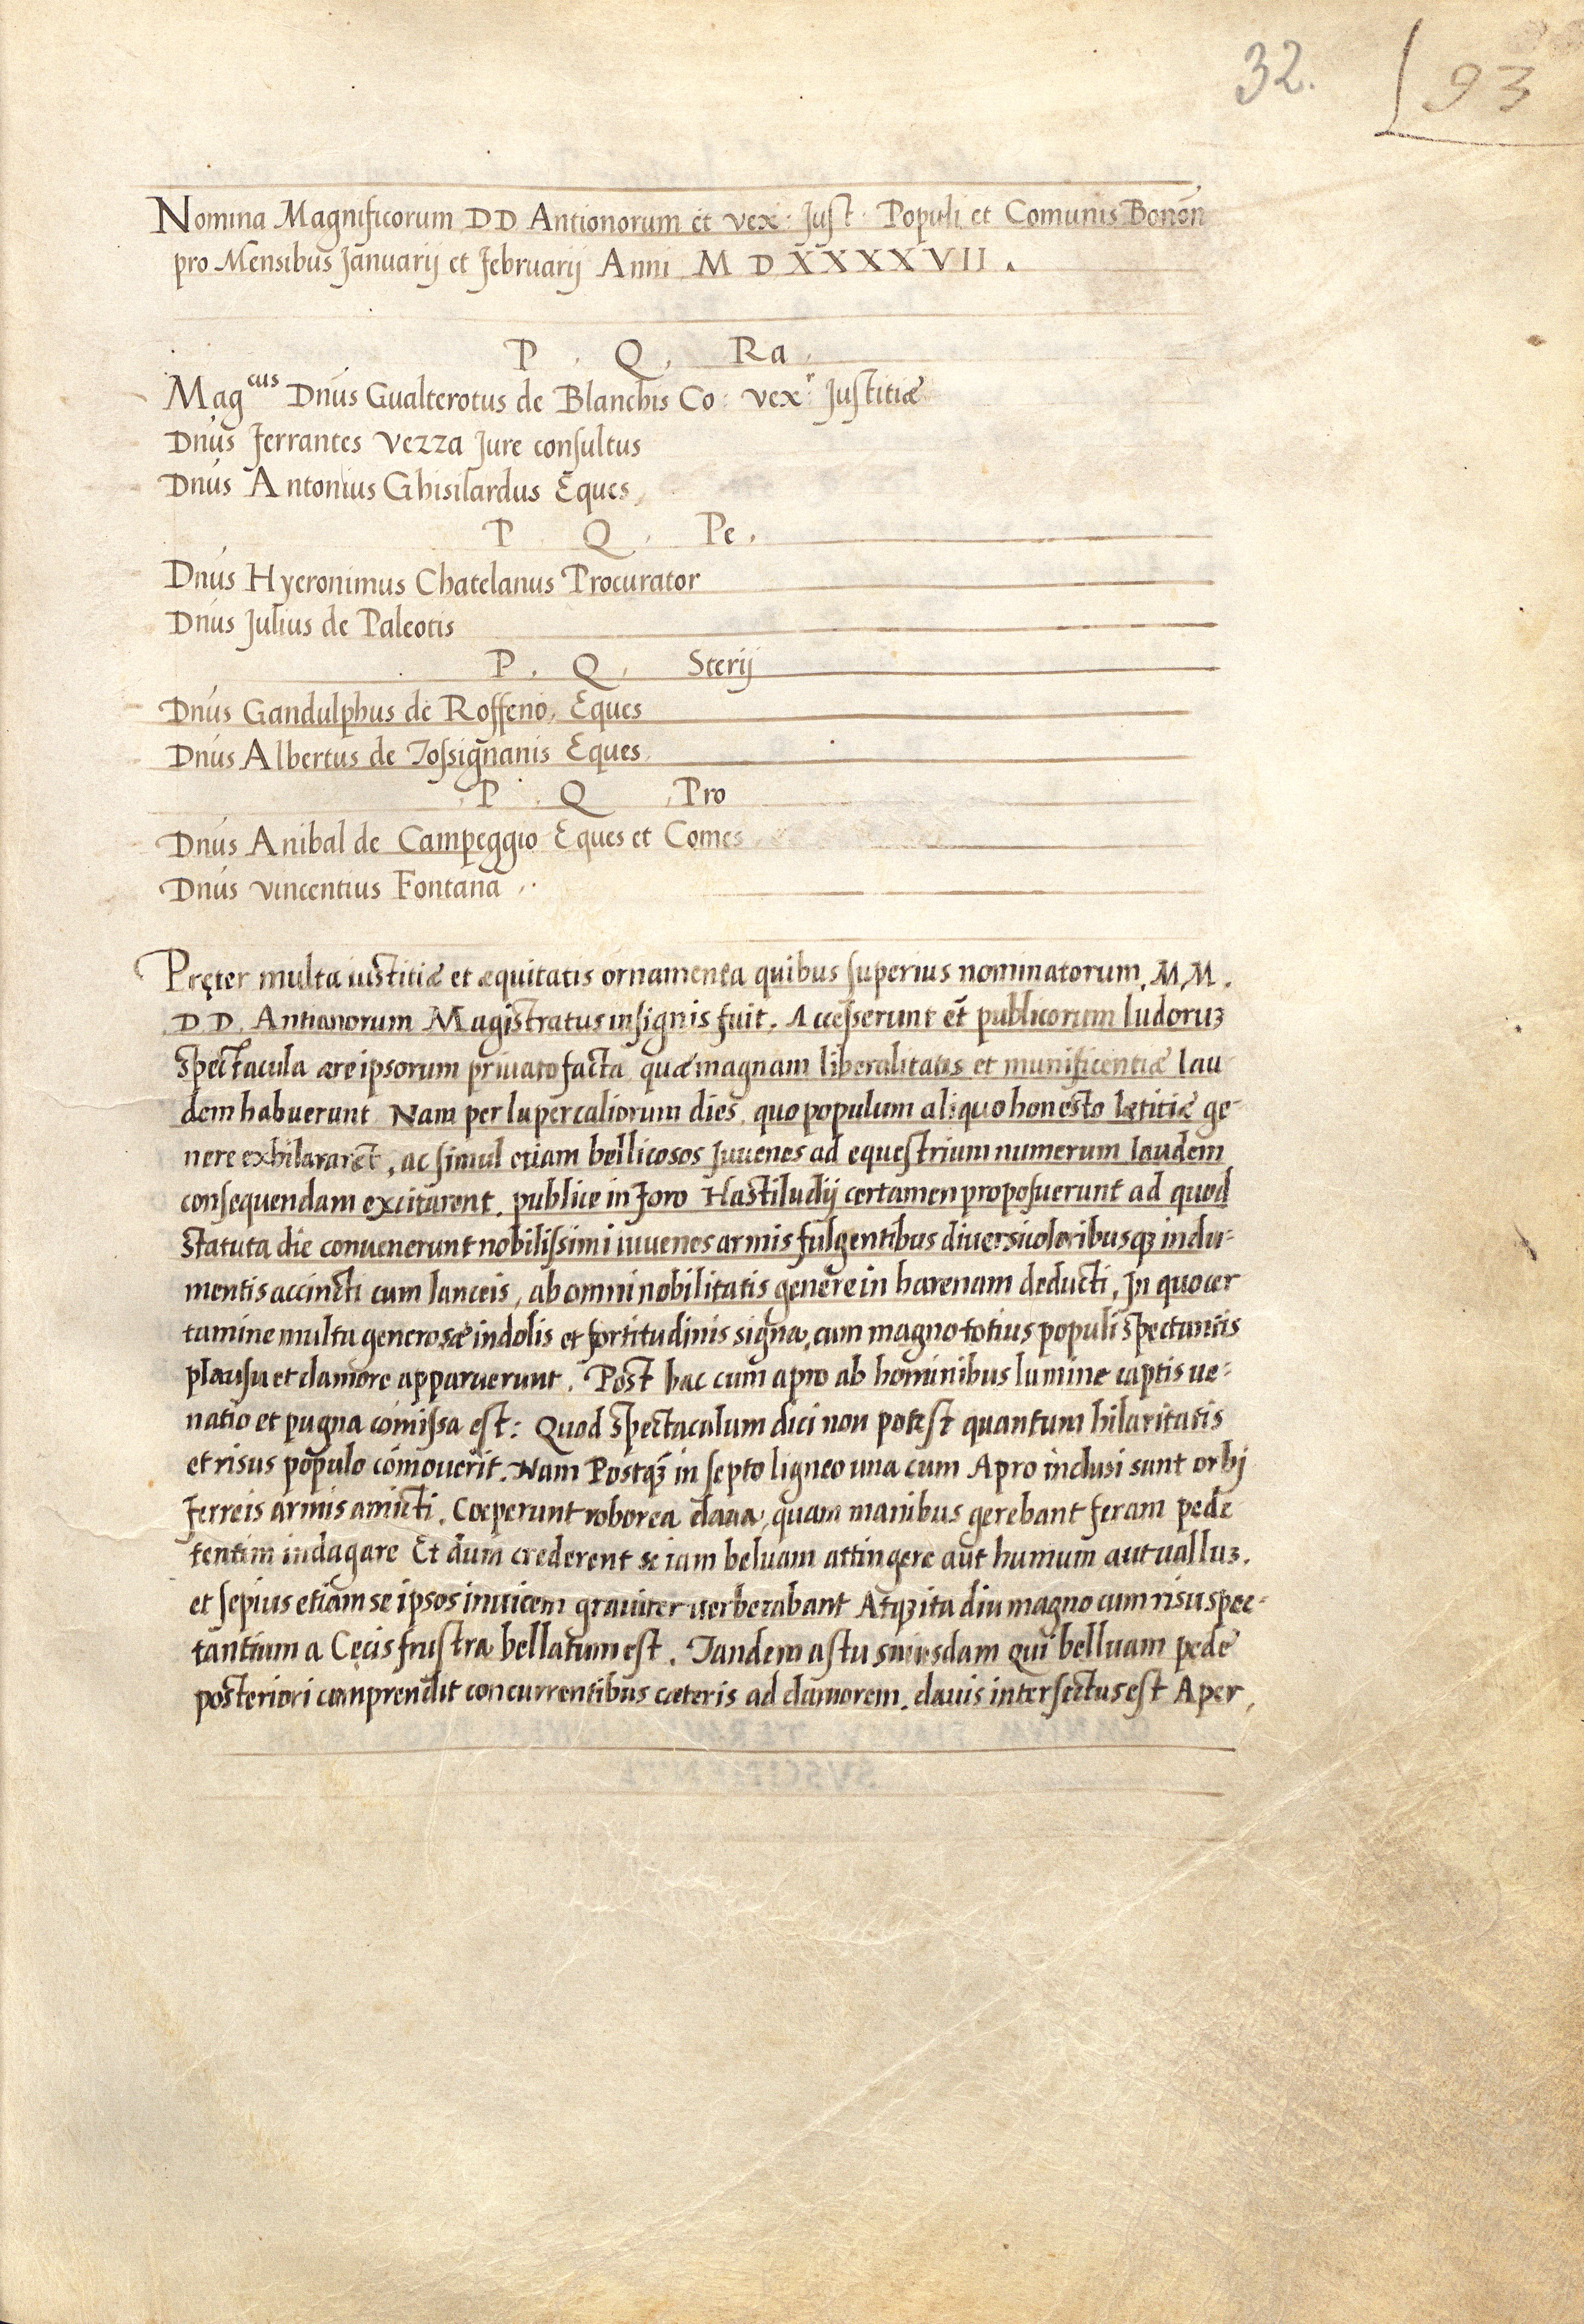 32. 93
Nomina Magnificorum DD Antionorum et vex: Just: Populi et Comunis Bonon̄
pro Mensibus Januarij et februarij Anni M D XXXXVII.
P. Q. Ra.
Mag^cus Dnūs Gualterotus de Blanchis Co: vex^r Justitiæ
Dnūs ferrantes vezza Jure consultus
Dnūs Antonius Ghisilardus Eques
P Q. Pe.
Dnūs Hyeronimus Chatelanus Procurator
Dnūs Julius de Paleotis
P. Q. Sterij
Dnūs Gandulphus de Roffeno, Eques
Dnūs Albertus de Tossignanis Eques
P. Q Pro
Dnūs Anibal de Campeggio Eques et Comes
Dnūs vincentius Fontana
Pręter multa iustitiæ et æquitatis ornamenta quibus superius nominatorum, M, M.
DD. Antianorum Magistratus insignis fuit. Accesserunt et̄ publicorum ludoruꝫ
spectacula ære ipsorum priuato facta, quæ magnam liberalitatis et munificentiæ lau
dem habuerunt Nam per lupercaliorum dies, quo populum aliquo honesto lætitiæ ge-
nere exhilararēt, ac simul etiam bellicosos Juuenes ad equestrium numerum laudem
consequendam excitarent. publice in foro Hastiludij certamen proposuerunt ad quod
statuta die conuenerunt nobilissimi iuuenes armis fulgentibus diuersicoloribusqꝫ indu-
mentis accincti cum lanceis, ab omni nobilitatis genere in harenam deducti, In quo cer
tamine multa generosæ indolis et fortitudinis signa, cum magno totius populi spectantis
plausu et clamore apparuerunt. Post hac cum apro ab hominibus lumine captis ue-
natio et pugna comissa est: Quod spectaculum dici non potest quantum hilaritatis
et risus populo cōmouerit. Nam Postqꝫ̄ in septo ligneo una cum Apro inclusi sunt orbj
ferreis armis amicti. Cœperunt roborea claua, quam manibus gerebant feram pede
tentim indagare Et dum crederent se iam beluam attingere aut humum aut ualluꝫ.
et sepius etiam se ipsos inuicem grauiter uerberabant Atqꝫ ita diu magno cum risu spec-
tantium a Cęcis frustra bellatum est. Tandem astu cuiusdam qui belluam pede
posteriori comprendit concurrentibus cæteris ad clamorem. clauis intersectus est Aper.